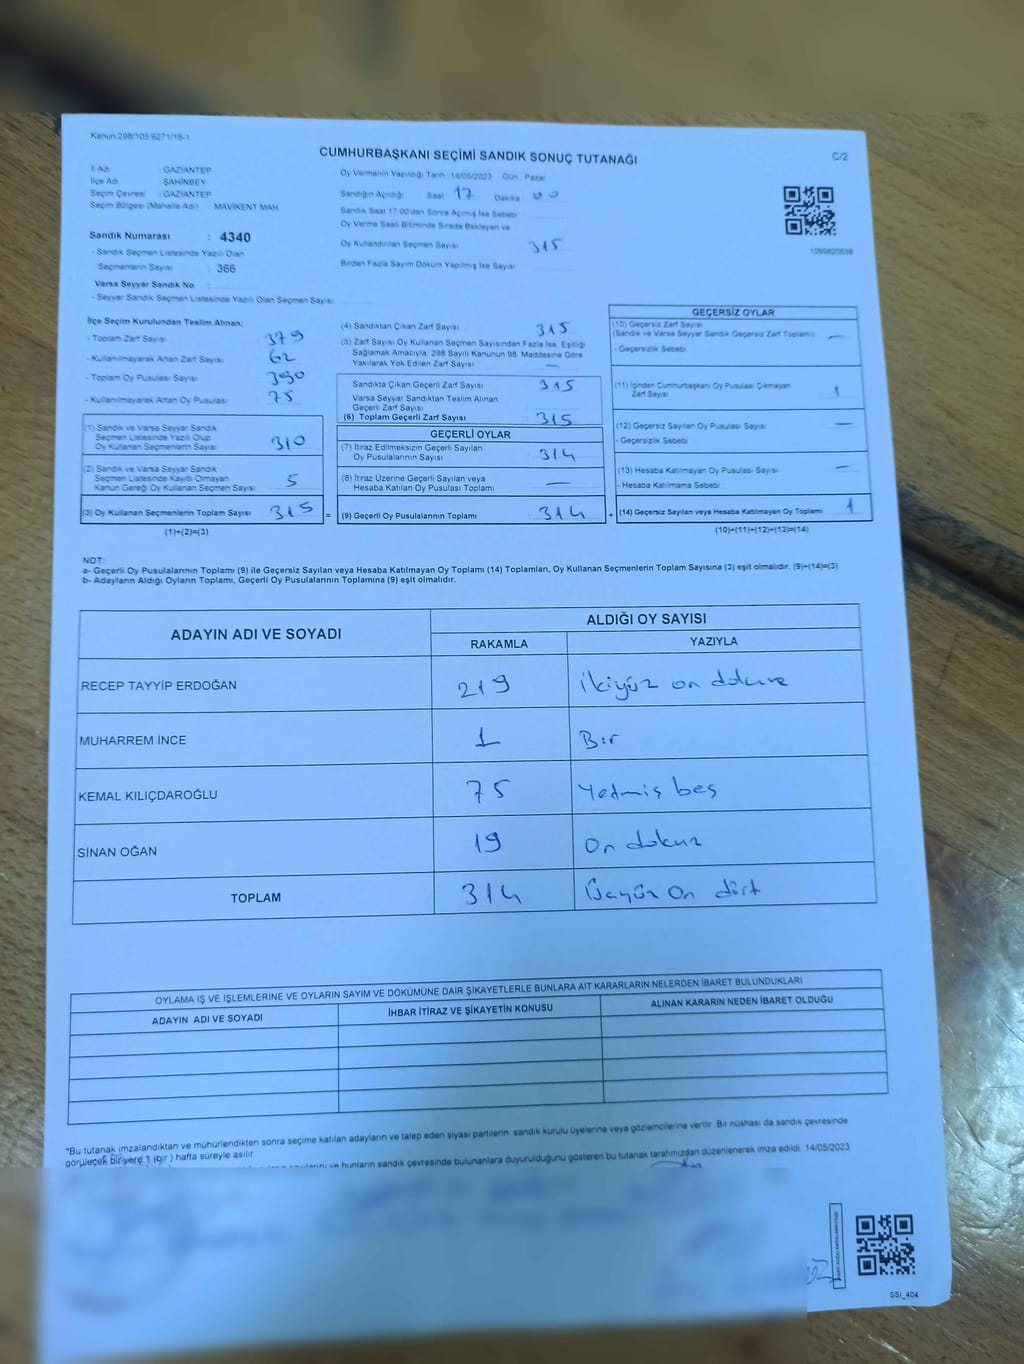 Kanun:298/105,6271/16-1
CUMHURBAŞKANI SEÇİMİ SANDIK SONUÇ TUTANAĞI
C/2
İl Adı GAZİANTEP
İlçe Adı ŞAHİNBEY
Seçim Çevresi : GAZİANTEP
Seçim Bölgesi (Mahalle Adı) : MAVİKENT MAH.
Sandık Numarası : 4340
- Sandık Seçmen Listesinde Yazılı Olan
Seçmenlerin Sayısı : 366
Varsa Seyyar Sandık No :
- Seyyar Sandık Seçmen Listesinde Yazılı Olan Seçmen Sayısı
Oy Vermenin Yapıldığı Tarih :14/05/2023 Gün : Pazar
Sandığın Açıldığı Saat 17 Dakika 00
Sandık Saat 17.00'den Sonra Açılmış İse Sebebi
Oy Verme Saati Bitiminde Sırada Bekleyen ve
Oy Kullandırılan Seçmen Sayısı 315
Birden Fazla Sayım Döküm Yapılmış İse Sayısı
1090820536
İlçe Seçim Kurulundan Teslim Alınan;
- Toplam Zarf Sayısı 379
- Kullanılmayarak Artan Zarf Sayısı 62
- Toplam Oy Pusulası Sayısı 390
- Kullanılmayarak Artan Oy Pusulası 75
(1) Sandık ve Varsa Seyyar Sandık
Seçmen Listesinde Yazılı Olup
Oy Kullanan Seçmenlerin Sayısı 310
(2) Sandık ve Varsa Seyyar Sandık
Seçmen Listesinde Kayıtlı Olmayan
Kanun Gereği Oy Kullanan Seçmen Sayısı 5
(3) Oy Kullanan Seçmenlerin Toplam Sayısı 315 =
(1)+(2)=(3)
(4) Sandıktan Çıkan Zarf Sayısı 315
(5) Zarf Sayısı Oy Kullanan Seçmen Sayısından Fazla İse, Eşitliği
Sağlamak Amacıyla, 298 Sayılı Kanunun 98. Maddesine Göre
Yakılarak Yok Edilen Zarf Sayısı —
Sandıkta Çıkan Geçerli Zarf Sayısı 315
Varsa Seyyar Sandıktan Teslim Alınan
Geçerli Zarf Sayısı
(6) Toplam Geçerli Zarf Sayısı 315
GEÇERLİ OYLAR
(7) İtiraz Edilmeksizin Geçerli Sayılan
Oy Pusulalarının Sayısı 314
(8) İtiraz Üzerine Geçerli Sayılan veya
Hesaba Katılan Oy Pusulası Toplamı —
(9) Geçerli Oy Pusulalarının Toplamı 314 +
GEÇERSİZ OYLAR
(10) Geçersiz Zarf Sayısı
(Sandık ve Varsa Seyyar Sandık Geçersiz Zarf Toplamı) —
- Geçersizlik Sebebi
(11) İçinden Cumhurbaşkanı Oy Pusulası Çıkmayan
Zarf Sayısı 1
(12) Geçersiz Sayılan Oy Pusulası Sayısı —
- Geçersizlik Sebebi
(13) Hesaba Katılmayan Oy Pusulası Sayısı —
- Hesaba Katılmama Sebebi
(14) Geçersiz Sayılan veya Hesaba Katılmayan Oy Toplamı 1
(10)+(11)+(12)+(13)=(14)
NOT:
a- Geçerli Oy Pusulalarının Toplamı (9) ile Geçersiz Sayılan veya Hesaba Katılmayan Oy Toplamı (14) Toplamları, Oy Kullanan Seçmenlerin Toplam Sayısına (3) eşit olmalıdır. (9)+(14)=(3)
b- Adayların Aldığı Oyların Toplamı, Geçerli Oy Pusulalarının Toplamına (9) eşit olmalıdır.
ADAYIN ADI VE SOYADI
ALDIĞI OY SAYISI
RAKAMLA YAZIYLA
RECEP TAYYİP ERDOĞAN 219 ikiyüz on dokuz
MUHARREM İNCE 1 Bir
KEMAL KILIÇDAROĞLU 75 Yetmiş beş
SİNAN OĞAN 19 On dokuz
TOPLAM 314 Üçyüz On dört
OYLAMA İŞ VE İŞLEMLERİNE VE OYLARIN SAYIM VE DÖKÜMÜNE DAİR ŞİKAYETLERLE BUNLARA AİT KARARLARIN NELERDEN İBARET BULUNDUKLARI
ADAYIN ADI VE SOYADI İHBAR İTİRAZ VE ŞİKAYETİN KONUSU ALINAN KARARIN NEDEN İBARET OLDUĞU
*Bu tutanak imzalandıktan ve mühürlendikten sonra seçime katılan adayların ve talep eden siyasi partilerin sandık kurulu üyelerine veya gözlemcilerine verilir. Bir nüshası da sandık çevresinde
görülecek bir yere 1 (bir ) hafta süreyle asılır.
ve bunların sandık çevresinde bulunanlara duyurulduğunu gösteren bu tutanak tarafımızdan düzenlenerek imza edildi. 14/05/2023
SSI_404